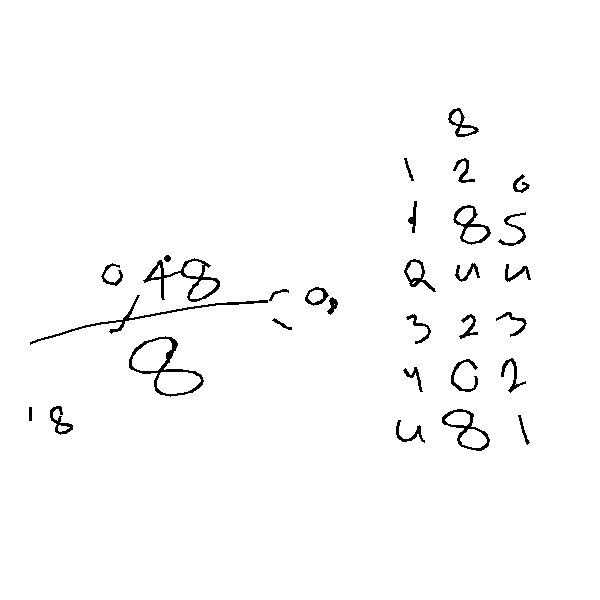 0,48
8
= 0,
18
8
1 2 0
1 8 5
2 4 4
3 2 3
4 0 2
4 8 1